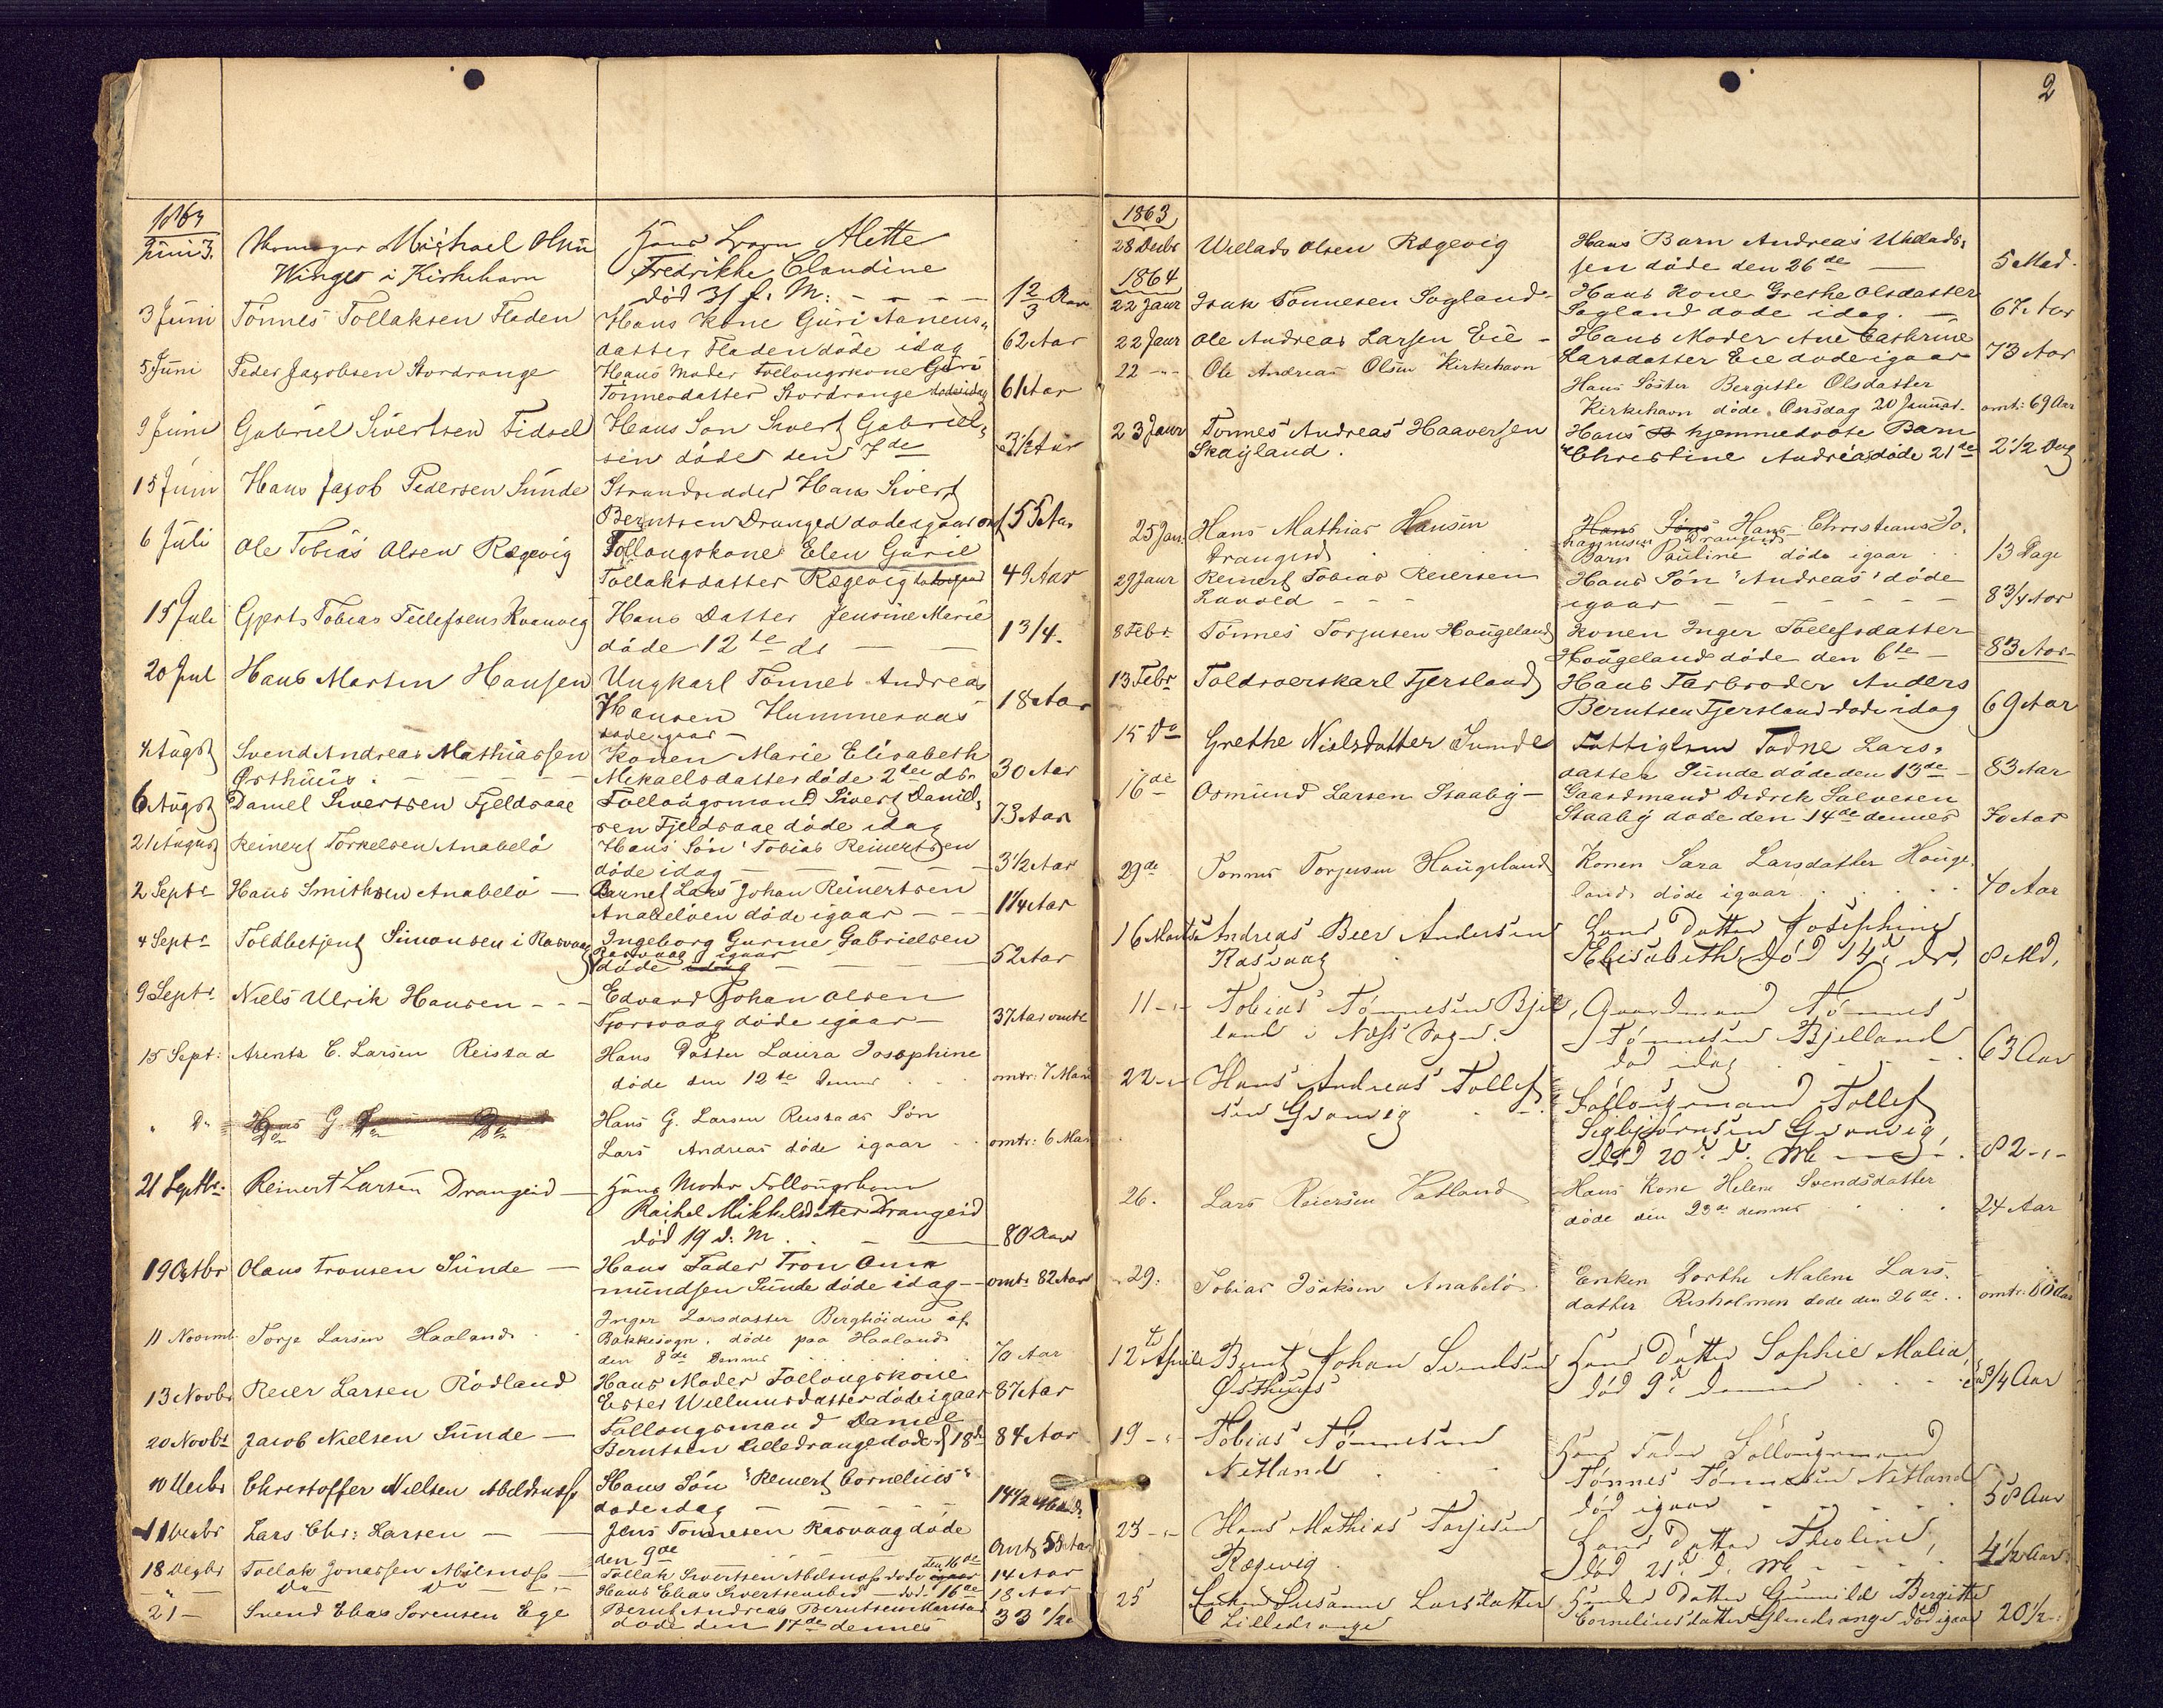 1863
Juni 3. Michael Olsen Hans Barn Alette
Winger i Kirkehavn Fredrikke Claudine
død 31 f. M: - - - - 1 2/3 Aar
3 Juni Tönnes Tollaksen Fladen Hans Kone Guri Aanens-
datter Fladen döde idag 62 Aar
5 Juni Peder Jacobsen Stordrange Hans Moder Follougskone Guri
Tönnesdatter Stordrange döde idag 61 Aar
9 Juni Gabriel Sivertsen Fidsel Hans Søn Sivert Gabriel-
sen döde den 7de 3 1/2 Aar
15 Juni Hans Jacob Pedersen Sunde Strandsidder Hans Sivert
Berntsen Drangeid döde igaar 55 Aar
6 Juli Ole Tobias Olsen Rægevig Follougskone Elen Gurie
Tollaksdatter Rægevig 49 Aar
15 Juli Gjerts Tobias Tellefsens Kvanvig Hans Datter Jensine Marie
döde 12te ds — — 1 3/4.
20 Jul Hans Martin Hansen Ungkarl Tönnes Andreas
Hansen Hummeraas 18 Aar
döde igaar —
4 Augst Svend Andreas Mathiassen Konen Marie Elisabeth
Østhuus . — — — — Mekaelsdatter döde 2den ds. 30 Aar
6 Augst Daniel Sivertsen Fjeldsaae Follougsmand Sivert Daniel-
sen Fjeldsaae döde idag 73 Aar
21 August Reinert Torkelsen Anabelö Hans Søn Tobias Reinertsen
döde idag — — — — 3 1/2 Aar
2 Septr Hans Smithsen Anabelö — Barnet Lars Johan Reinertsen
Anabelöen döde igaar — — 1 1/4 Aar
4 Septr Toldbetjent Simonsen i Rasvaag Ingeborg Gurine Gabrielsen
Rasvaag igaar
döde idag — — — 52 Aar
9 Septr Niels Ulrik Hansen - - - Edvard Johan Olsen
Fjorsvaag döde igaar — 37 Aar omtr
15 Sept: Arentz C. Larsen Reistad Hans Datter Laura Josephine
döde den 12te denne . . . omtr: 7 Maan
" D° Hans G. Hans G. Larsen Reistads Søn
Lars Andreas döde igaar . . omtr: 6 Maa
21 Septbr. Reinert Larsen Drangeid — Hans Moder Follougskone
Rachel Mikkelsdatter Drangeid
död 19 d. M . . — 80 Aar
19 Octbr Olaus Tronsen Sunde — Hans Fader Tron Om
mundsen Sunde döde idag — omtr 82 Aar
11 Novemb Torje Larsen Haaland . . Inger Larsdatter Berghöiden af
Bakkesogn. döde paa Haaland
den 8de Dennes . . . 70 Aar
13 Novbr Reier Larsen Rödland Hans Moder Follougskone
Ester Willumsdatter döde igaar 87 Aar
20 Novbr Jacob Nielsen Sunde — Follougsmand Daniel
Berntsen Lilledrange döde d 18de 84 Aar
10 Decbr Christoffer Nielsen Abelsnæs Hans Søn "Reinert Cornelius"
döde idag — — — — — 14 1/2 Maand.
11 Decbr Lars Chr: Larsen — — Jens Tönnesen Rasvaag döde
den 9de Omtr 58 Aar
18 Decbr Tollak Jonassen Abelsnæs — Tollak Sivertsen Abelsnæs döde igaar den 16de 14 Aar
— " — Do Do — " — Hans Elias Sivertsen ibid — död 16de 18 Aar
21 — Svend Elias Sorensen Ege Bernt Andreas Berntsen
döde den 17de dennes 33 1/2
2
1863
28 Decbr Willads Olsen Rægevig Hans Barn Andreas Willads-
sen döde den 26de — 5 Mad.
1864
22 Jaur Isak Tönnesen Sogland - Hans Kone Grethe Olsdatter
Sogland döde idag. — 67 Aar
22 Jaur Ole Andreas Larsen Eie - Hans Moder Ane Cathrine
Larsdatter Eie döde igaar 73 Aar
22 -"- Ole Andreas Olsen Kirkehavn Hans Söster Bergitte Olsdatter
Kirkehavn döde Onsdag 20 Januar. omtr: 69 Aar
23 Jaur Tönnes Andreas Haaversen Hans B hjemmedöbte Barn
Skagland. Christine Andrea döde 21de 2 1/2 Dag
25 Jan. Hans Mathias Hansen Hans Søns Hans Christians Jo-
Drangeid . . . hannesen Drangeids
Barn Pauline döde igaar . . 13 Dage
29 Jaur Reinert Tobias Reiersen Hans Søn "Andreas" döde
Lavold - - - igaar — — — — — 8 3/4 Aar
8 Febr. Tönnes Torjusen Haugeland Konen Inger Tollefsdatter
Haugeland döde den 6te — 83 Aar
13 Febr Toldroerskarl Tjersland Hans Farbroder Anders
Berntsen Tjersland döde idag 69 Aar
15 Do Grethe Nielsdatter Sunde Fattiglem Todne Lars-
datter Sunde döde den 13de — 83 Aar
16de Osmund Larsen Staaby — Gaardmand Didrek Salvesen
Staaby döde den 14de dennes 70 Aar
29de Tönnes Torjusen Haugeland Konen Sara Larsdatter Hauge-
land döde igaar . . . . . 40 Aar
16 Marts Andreas Beer Andersen Hans Datter Josephine
Rasvaag . Elisabeth, död 14d. ds. 8 Md.
11 -"- Tobias Tönnesen Bjel- Gaardmand Tönnes
land i Næs Sogn. Tönnesen Bjelland
död idag . . - - - . 63 Aar
22 -"- Hans Andreas Tollef- Follougsmand Tollef
sen Gronvig . -. Sigbjörnsen Gronvig,
död 20d. d. M — — . 82 -"-
26. Lars Reiersen Vatland Hans Kone Helene Svendsdatter
döde den 23de dennes . . . 24 Aar
29. Tobias Isaksen Anabelö Enken Dorthe Malene Lars-
datter Risholmen döde den 26de . . omtr: 60 Aar
12te Aprile Bernt Johan Svendsen Hans Datter Sophie Malia,
Østhuus död 9d. dennes . . . . 3/4 Aar
19 -"- Tobias Tönnesen Hans Fader Follougsmand
Netland . . . Tönnes Tönnesen Netland
död igaar - - - . . 58 Aar
23 -"- Hans Mathias Torjesen Hans Datter Theoline,
Rægevig . död 21d. d. M - - - - 4 1/2 Aar.
25 Enken Susanne Larsdatter Hendes Datter Gunnild Bergitte
Lilledrange Corneliusdatter Lilledrange död igaar 20 1/2 -"-